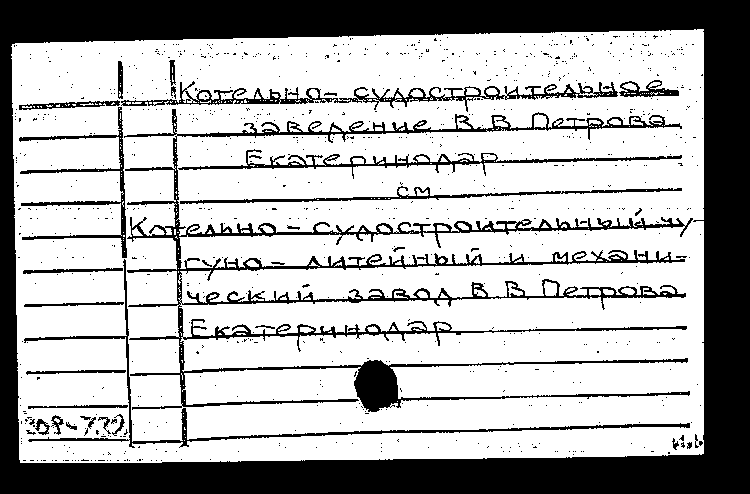 Котельно- судостроительное
заведение В. В. Петрова
Екатеринодар
см.
Котельно - судостроительный чу-
гуно - литейный и механи-
ческий завод В. В. Петрова
Екатеринодар.